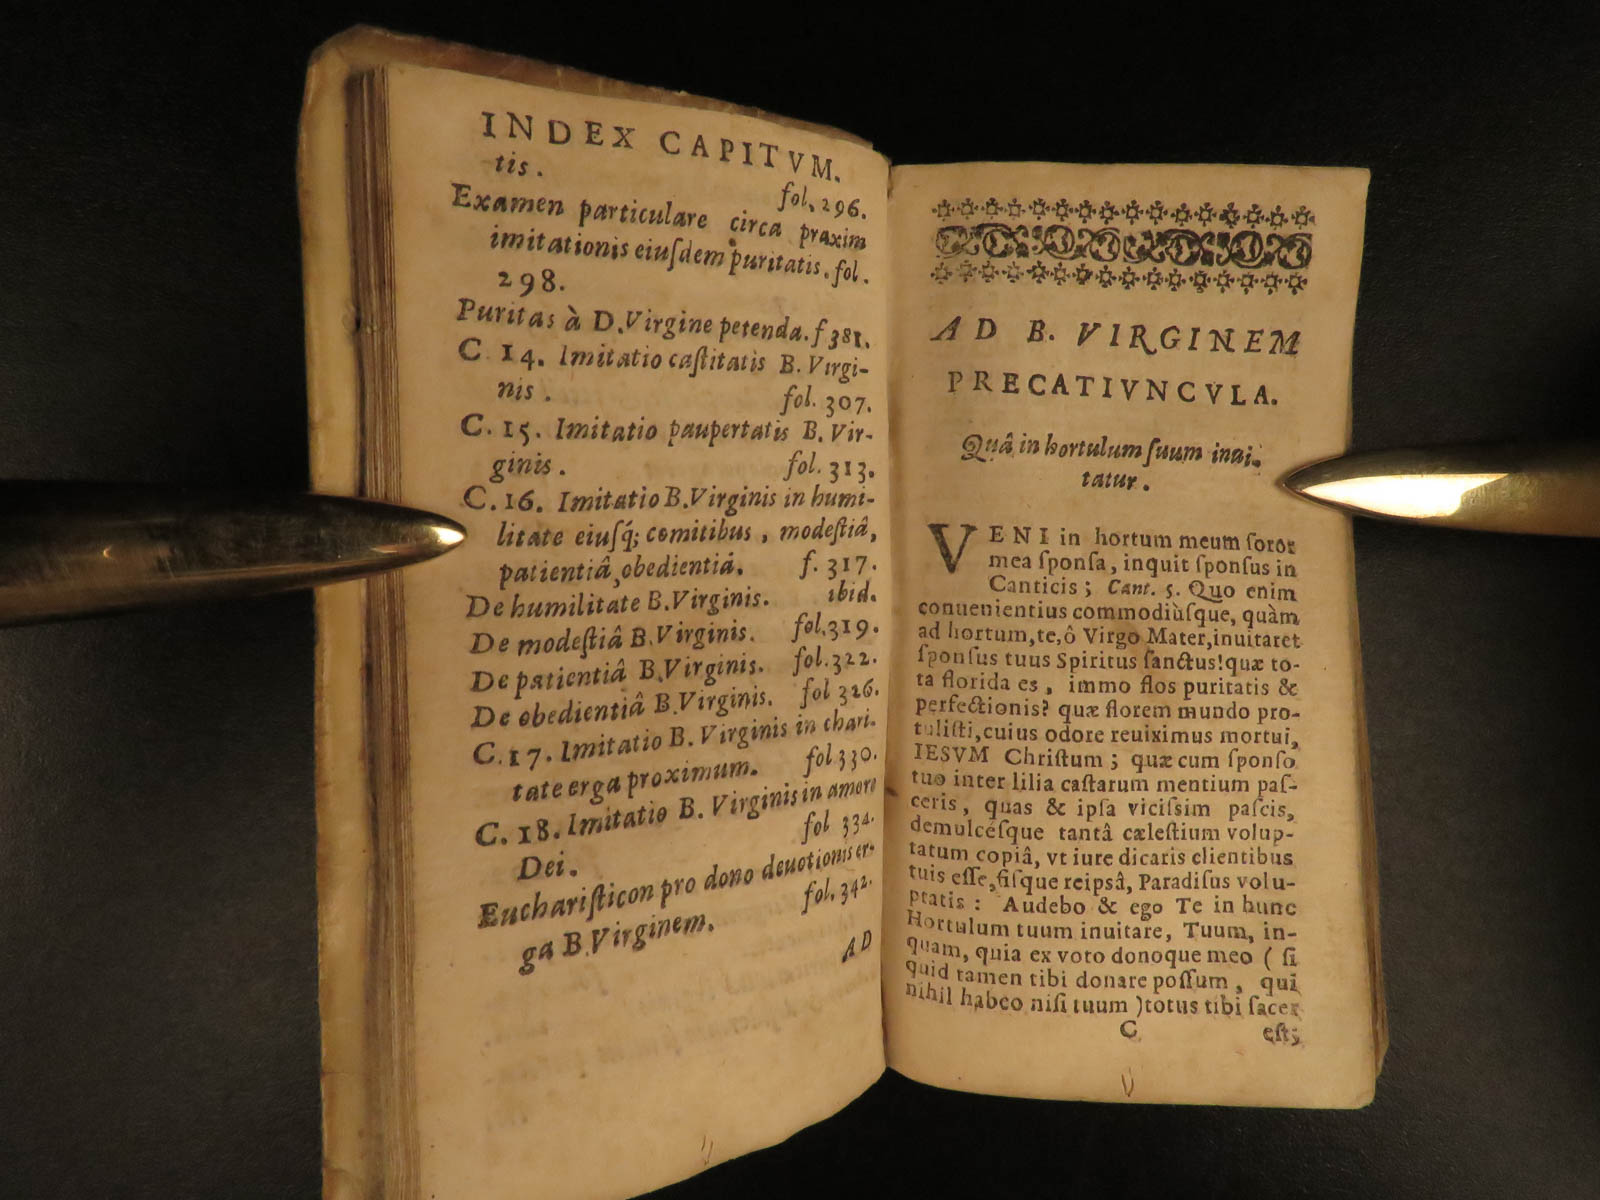 INDEX CAPITVM.
tis.
fol. 296.
Examen particulare circa praxim
imitationis eiuſdem puritatis. fol.
298.
Puritas à D. Virgine petenda. f 381.
C 14. Imitatio caſtitatis B. Virgi-
nis. fol. 307.
C. 15. Imitatio paupertatis B. Vir-
ginis. fol. 313.
C. 16. Imitatio B. Virginis in humi-
litate eiuſq́; comitibus, modeſtiâ,
patientiâ, obedientiâ. f. 317.
De humilitate B. Virginis. ibid.
De modeſtiâ B. Virginis. fol. 319.
De patientiâ B. Virginis. fol. 322.
De obedientiâ B. Virginis. fol 326.
C. 17. Imitatio B. Virginis in chari-
tate erga proximum. fol 330.
C. 18. Imitatio B. Virginis in amore
Dei. fol 334.
Euchariſticon pro dono deuotionis er-
ga B. Virginem. fol. 342.
AD
AD B. VIRGINEM
PRECATIVNCVLA.
Quâ in hortulum ſuum inui-
tatur.
VENI in hortum meum ſoror
mea ſponſa, inquit ſponſus in
Canticis; Cant. 5. Quo enim
conuenientius commodiùſque, quàm
ad hortum, te, ô Virgo Mater, inuitaret
ſponſus tuus Spiritus ſanctus! quæ to-
ta florida es, immo flos puritatis &
perfectionis? quæ florem mundo pro-
tuliſti, cuius odore reuiximus mortui,
IESVM Chriſtum; quæ cum ſponſo
tuo inter lilia caſtarum mentium paſ-
ceris, quas & ipſa viciſſim paſcis,
demulcéſque tantâ cæleſtium volup-
tatum copiâ, vt iure dicaris clientibus
tuis eſſe, ſiſque reipsâ, Paradiſus volu-
ptatis: Audebo & ego Te in hunc
Hortulum tuum inuitare, Tuum, in-
quam, quia ex voto donoque meo ( ſi
quid tamen tibi donare poſſum, qui
nihil habeo niſi tuum ) totus tibi ſacer
C eſt;